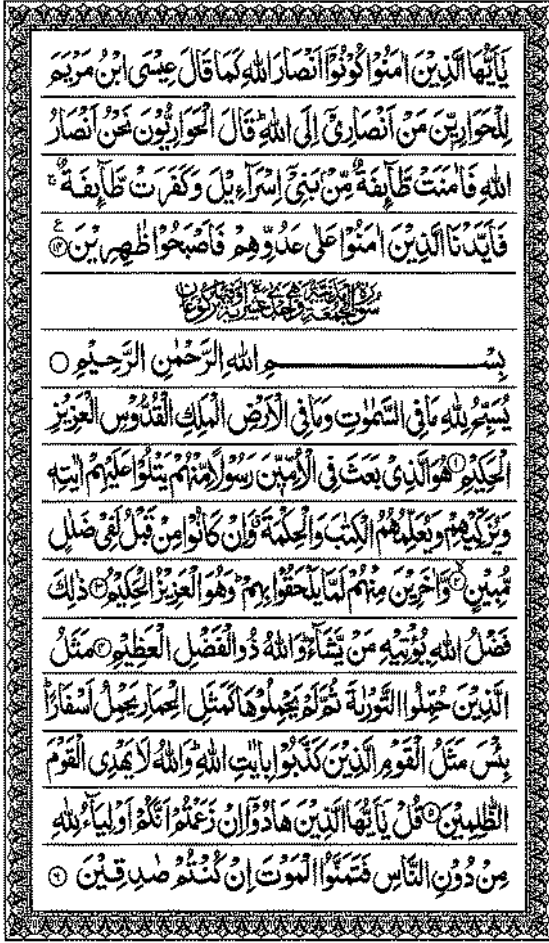 يٰۤاَيُّهَا الَّذِيْنَ اٰمَنُوْا كُوْنُوْۤا اَنْصَارَ اللّٰهِ كَمَا قَالَ عِيْسَى ابْنُ مَرْيَمَ
لِلْحَوَارِيّٖنَ مَنْ اَنْصَارِيْۤ اِلَى اللّٰهِؕ قَالَ الْحَوَارِيُّوْنَ نَحْنُ اَنْصَارُ
اللّٰهِ فَاٰمَنَتْ طَّآئِفَةٌ مِّنْۢ بَنِيْۤ اِسْرَآءِيْلَ وَكَفَرَتْ طَّآئِفَةٌۚ
فَاَيَّدْنَا الَّذِيْنَ اٰمَنُوْا عَلٰى عَدُوِّهِمْ فَاَصْبَحُوْا ظٰهِرِيْنَ ۝۱۴ ع
سُوْرَةُ الْجُمُعَةِ
بِسْمِ اللّٰهِ الرَّحْمٰنِ الرَّحِيْمِ ۝
يُسَبِّحُ لِلّٰهِ مَا فِي السَّمٰوٰتِ وَمَا فِي الْاَرْضِ الْمَلِكِ الْقُدُّوْسِ الْعَزِيْزِ
الْحَكِيْمِ ۝۱ هُوَ الَّذِيْ بَعَثَ فِي الْاُمِّيّٖنَ رَسُوْلًا مِّنْهُمْ يَتْلُوْا عَلَيْهِمْ اٰيٰتِهٖ
وَيُزَكِّيْهِمْ وَيُعَلِّمُهُمُ الْكِتٰبَ وَالْحِكْمَةَۗ وَاِنْ كَانُوْا مِنْ قَبْلُ لَفِيْ ضَلٰلٍ
مُّبِيْنٍ ۝۲ وَّاٰخَرِيْنَ مِنْهُمْ لَمَّا يَلْحَقُوْا بِهِمْؕ وَهُوَ الْعَزِيْزُ الْحَكِيْمُ ۝۳ ذٰلِكَ
فَضْلُ اللّٰهِ يُؤْتِيْهِ مَنْ يَّشَآءُؕ وَاللّٰهُ ذُو الْفَضْلِ الْعَظِيْمِ ۝۴ مَثَلُ
الَّذِيْنَ حُمِّلُوا التَّوْرٰىةَ ثُمَّ لَمْ يَحْمِلُوْهَا كَمَثَلِ الْحِمَارِ يَحْمِلُ اَسْفَارًاؕ
بِئْسَ مَثَلُ الْقَوْمِ الَّذِيْنَ كَذَّبُوْا بِاٰيٰتِ اللّٰهِؕ وَاللّٰهُ لَا يَهْدِي الْقَوْمَ
الظّٰلِمِيْنَ ۝۵ قُلْ يٰۤاَيُّهَا الَّذِيْنَ هَادُوْۤا اِنْ زَعَمْتُمْ اَنَّكُمْ اَوْلِيَآءُ لِلّٰهِ
مِنْ دُوْنِ النَّاسِ فَتَمَنَّوُا الْمَوْتَ اِنْ كُنْتُمْ صٰدِقِيْنَ ۝۶